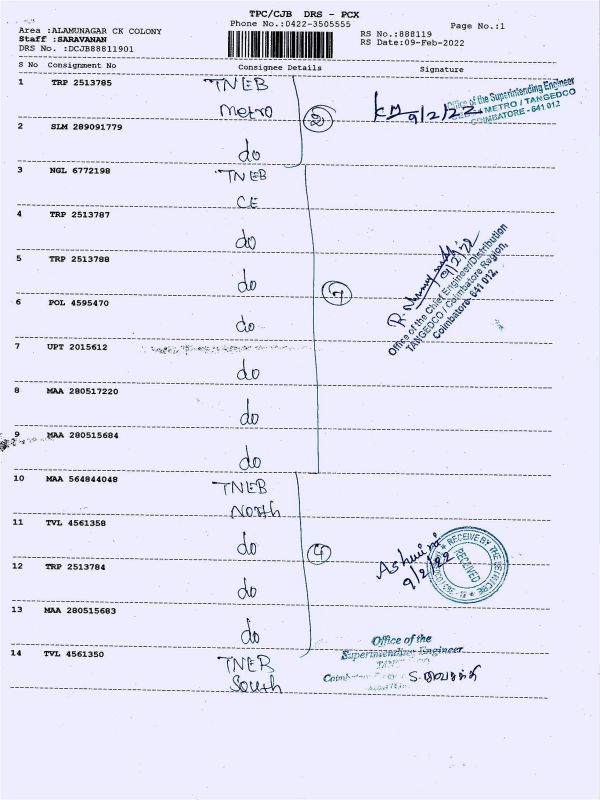 TPC/CJB DRS - PCX
Area :ALAMUNAGAR CK COLONY
Phone No.:0422-3505555
Page No.:1
Staff :SARAVANAN
RS No.:888119
DRS No. :DCJB88811901
RS Date:09-Feb-2022
S No Consignment No Consignee Details Signature
1 TRP 2513785 TNEB
Metro
(2)
KM 9/2/22
Office of the Superintending Engineer
METRO / TANGEDCO
COIMBATORE - 641 012
2 SLM 289091779
do
3 NGL 6772198 TNEB
CE
4 TRP 2513787
do
5 TRP 2513788
do
(7)
9/2/22
Office of the Chief Engineer/Distribution
TANGEDCO / Coimbatore Region,
Coimbatore- 641 012.
6 POL 4595470
do
7 UPT 2015612
do
8 MAA 280517220
do
9 MAA 280515684
do
10 MAA 564844048 TNEB
North
11 TVL 4561358
do
(4)
Ashwini
9/2/22
RECEIVE BY THE
RECEIVED
12 TRP 2513784
do
13 MAA 280515683
do
14 TVL 4561350 TNEB
South
Office of the
Superintending Engineer
TANGEDCO